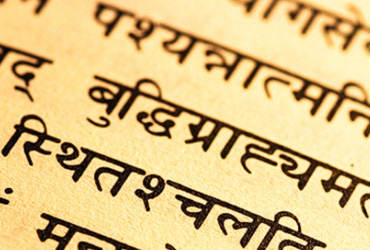 गसे
पश्यन्नात्मनि
द् बुद्धिग्राह्यमत
स्थितश्चलति